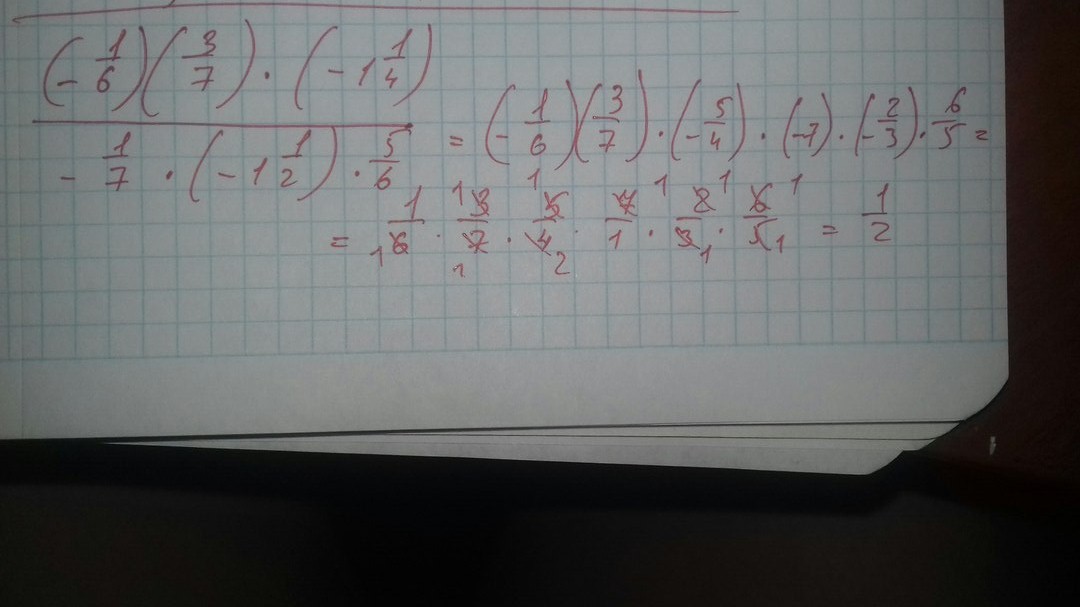 (-1/6)(3/7)·(-1 1/4)
-1/7·(-1 1/2)·5/6 = (-1/6)(3/7)·(-5/4)·(-7)·(-2/3)·6/5 =
= 1/6·3/7·5/4·7/1·2/3·6/5 = 1/2